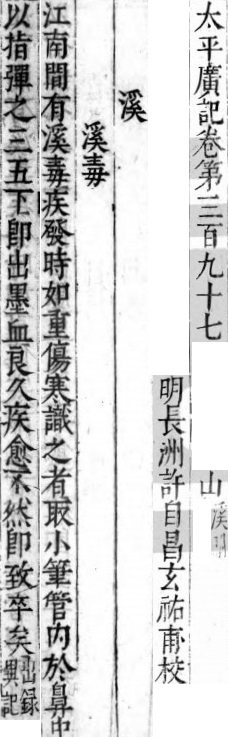 太平廣記卷第三百九十七
山 溪
明長洲許自昌玄祐甫校
溪
溪毒
江南間有溪毒疾發時如重傷寒識之者取小筆管内於鼻中
以指彈之三五下即出墨血良久疾愈不然即致卒矣出録異記